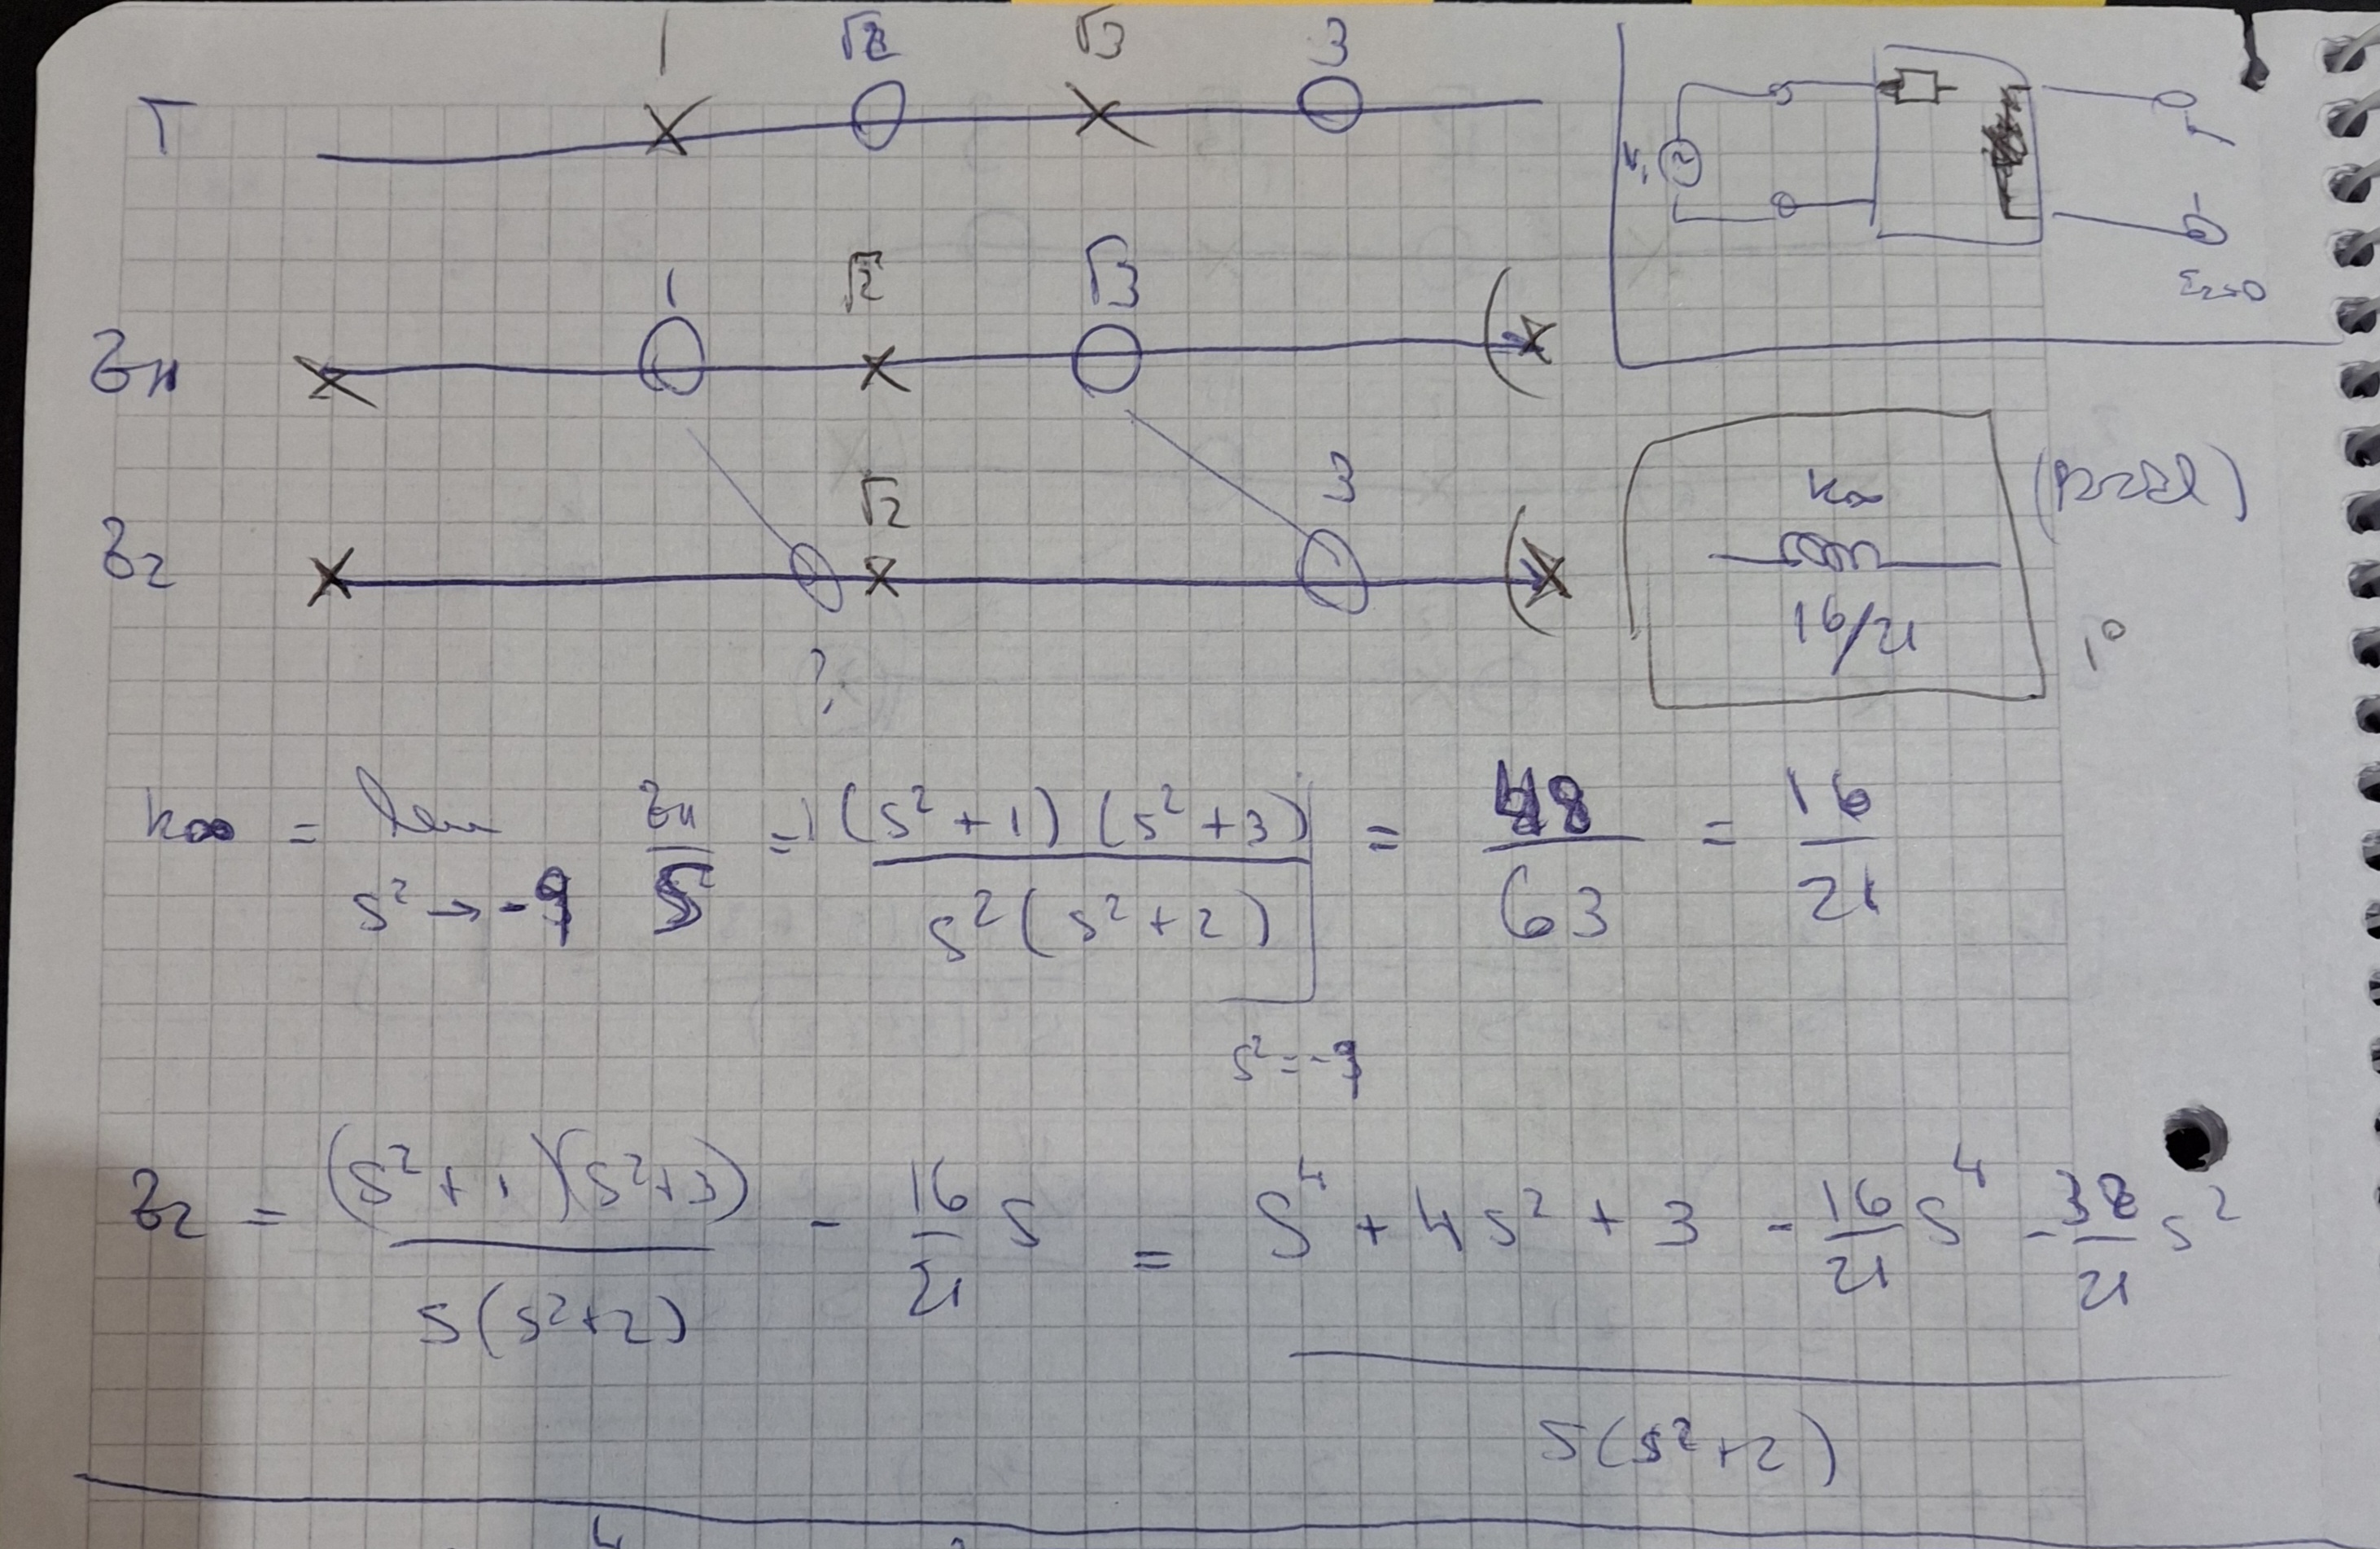 1 √2 √3 3
T
V₁
1 √2 √3
Z₁₁
√2 3
Z₂
?
k∞
16/21
1°
k∞ = lim s² → -9 Z₁₁/s = (s² + 1)(s² + 3) / s²(s² + 2) | s² = -9 = 48/63 = 16/21
Z₂ = (s² + 1)(s² + 3) / s(s² + 2) - 16/21 s = s⁴ + 4s² + 3 - 16/21 s⁴ - 32/21 s² / s(s² + 2)